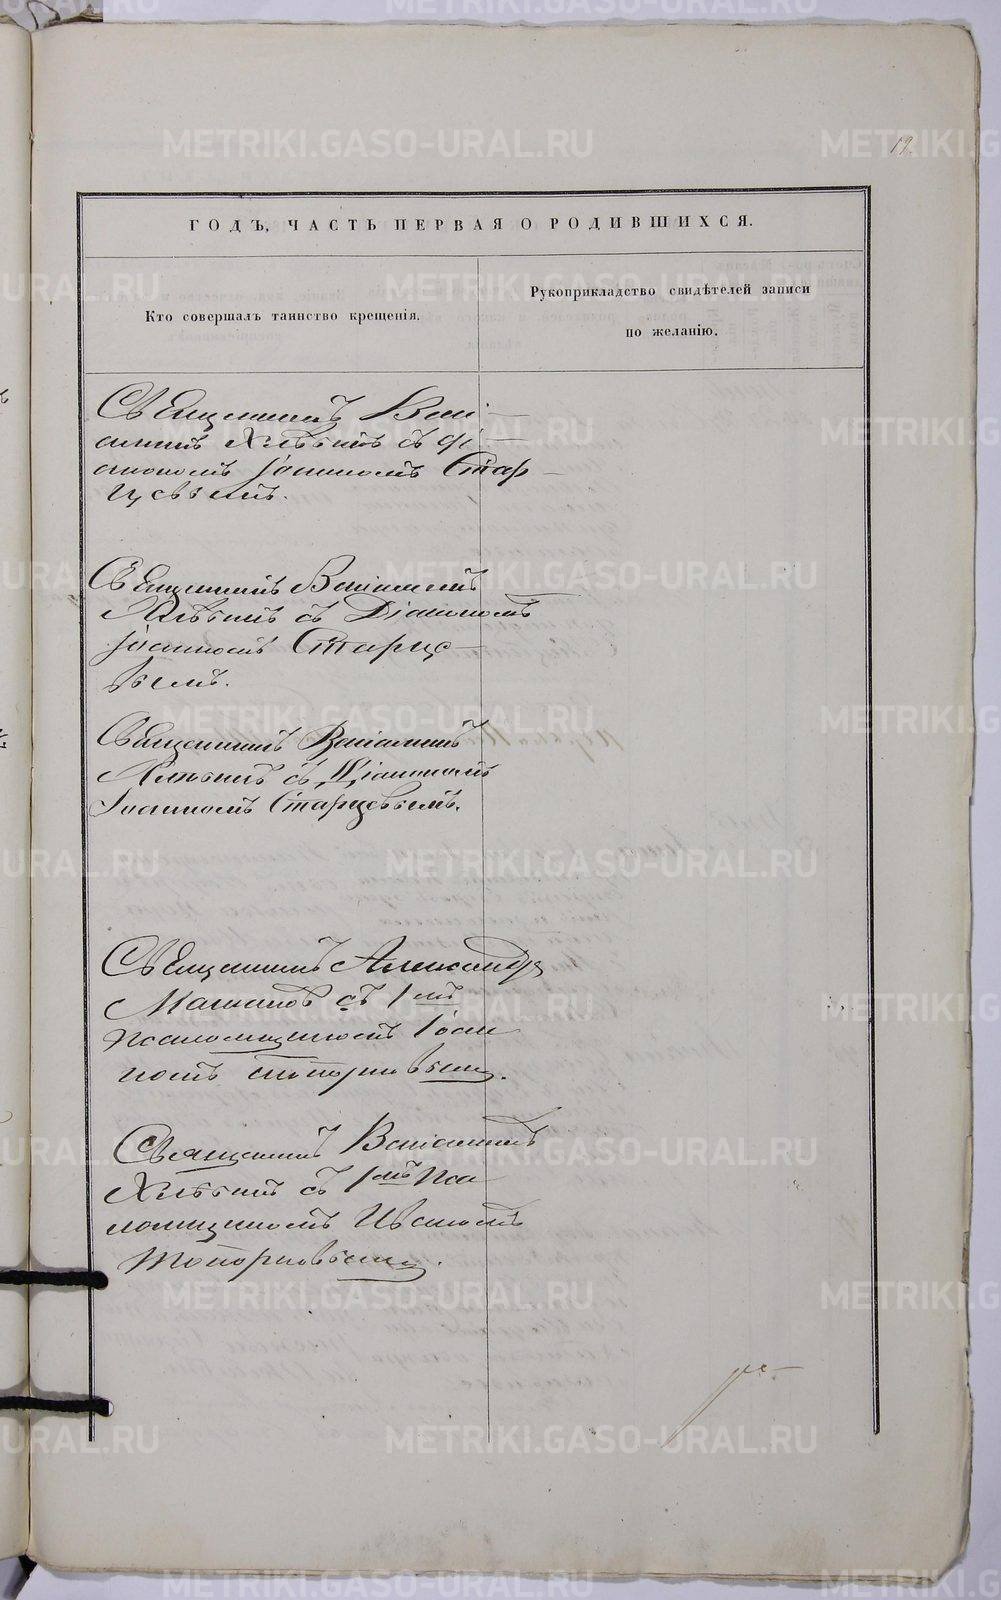 19.
ГОДЪ, ЧАСТЬ ПЕРВАЯ О РОДИВШИХСЯ.
Кто совершалъ таинство крещенія.
Рукоприкладство свидѣтелей записи
по желанію.
Священникъ Вені-
аминъ Хлѣбинъ съ Ді-
акономъ Іоанномъ Стар
цевымъ.
Священникъ Веніаминъ
Хлѣбинъ съ Діакономъ
Іоанномъ Старце-
вымъ.
Священникъ Веніаминъ
Хлѣбинъ съ Діакономъ
Іоанномъ Старцевымъ.
Священникъ Александръ
съ 1мъ
псаломщикомъ Іоан
номъ Топорковымъ.
Священникъ Веніаминъ
Хлѣбинъ съ 1мъ Пса
ломщикомъ Иваномъ
Топорковымъ.
METRIKI.GASO-URAL.RU